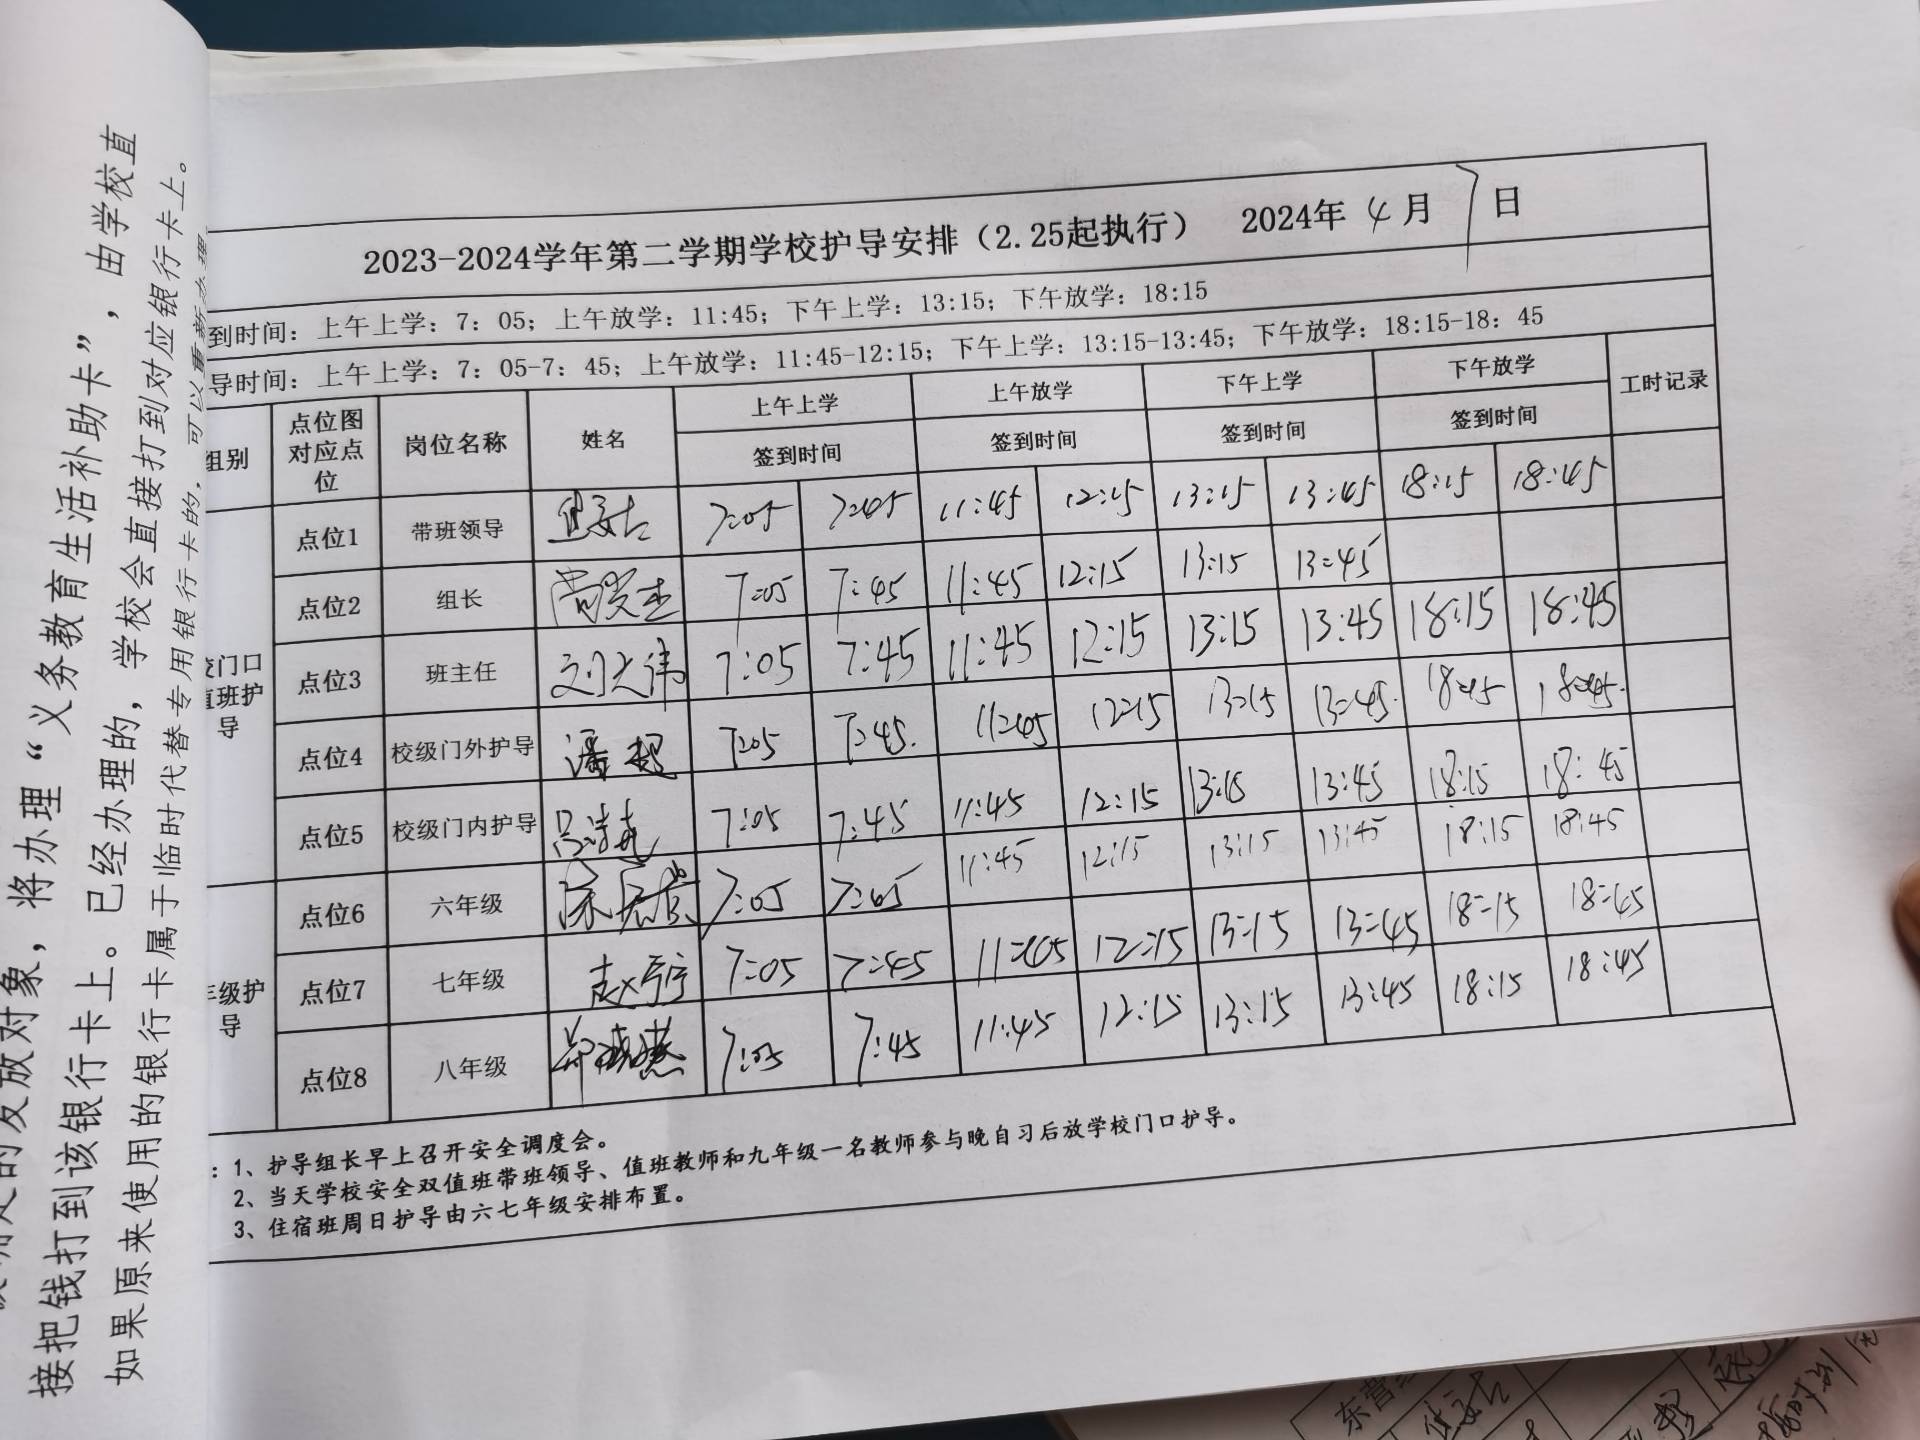 由学校直
将办理“义务教育生活补助卡”，由学校直
接把钱打到该银行卡上。已经办理的，学校会直接打到对应银行卡上。
如果原来使用的银行卡属于临时代替专用银行卡的，可以重新办理
2023-2024学年第二学期学校护导安排（2.25起执行） 2024年 4 月 7 日
到时间：上午上学：7：05；上午放学：11:45；下午上学：13:15；下午放学：18:15
导时间：上午上学：7：05-7：45；上午放学：11:45-12:15；下午上学：13:15-13:45；下午放学：18:15-18：45
组别 点位图对应点位 岗位名称 姓名 上午上学 上午放学 下午上学 下午放学 工时记录
签到时间 签到时间 签到时间 签到时间
校门口值班护导
点位1 带班领导 7:05 7:45 11:45 12:15 13:15 13:45 18:15 18:45
点位2 组长 7:05 7:45 11:45 12:15 13:15 13:45
点位3 班主任 刘大伟 7:05 7:45 11:45 12:15 13:15 13:45 18:15 18:45
点位4 校级门外护导 潘超 7:05 7:45 11:45 12:15 13:15 13:45 18:15 18:45
点位5 校级门内护导 7:05 7:45 11:45 12:15 13:15 13:45 18:15 18:45
年级护导
点位6 六年级 7:05 7:45 11:45 12:15 13:15 13:45 18:15 18:45
点位7 七年级 7:05 7:45 11:45 12:15 13:15 13:45 18:15 18:45
点位8 八年级 7:05 7:45 11:45 12:15 13:15 13:45 18:15 18:45
：1、护导组长早上召开安全调度会。
2、当天学校安全双值班带班领导、值班教师和九年级一名教师参与晚自习后放学校门口护导。
3、住宿班周日护导由六七年级安排布置。
东营